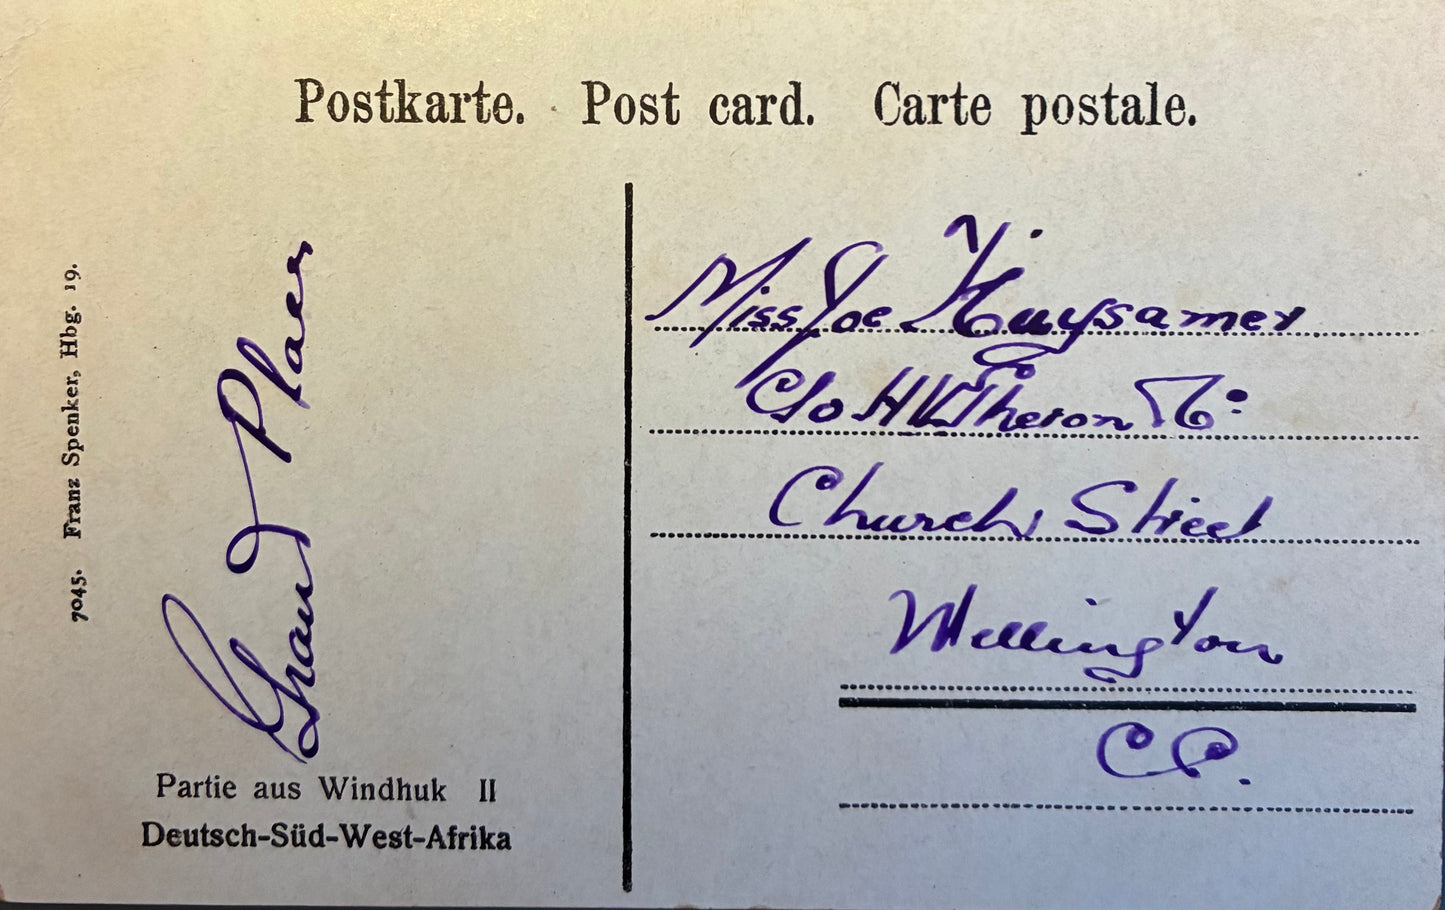 Postkarte. Post card. Carte postale.
7045. Franz Spenker, Hbg. 19.
Grand Place
Partie aus Windhuk II
Deutsch-Süd-West-Afrika
Miss Joe Huysamer
C/o H Theron
Church Street
Wellington
C P.